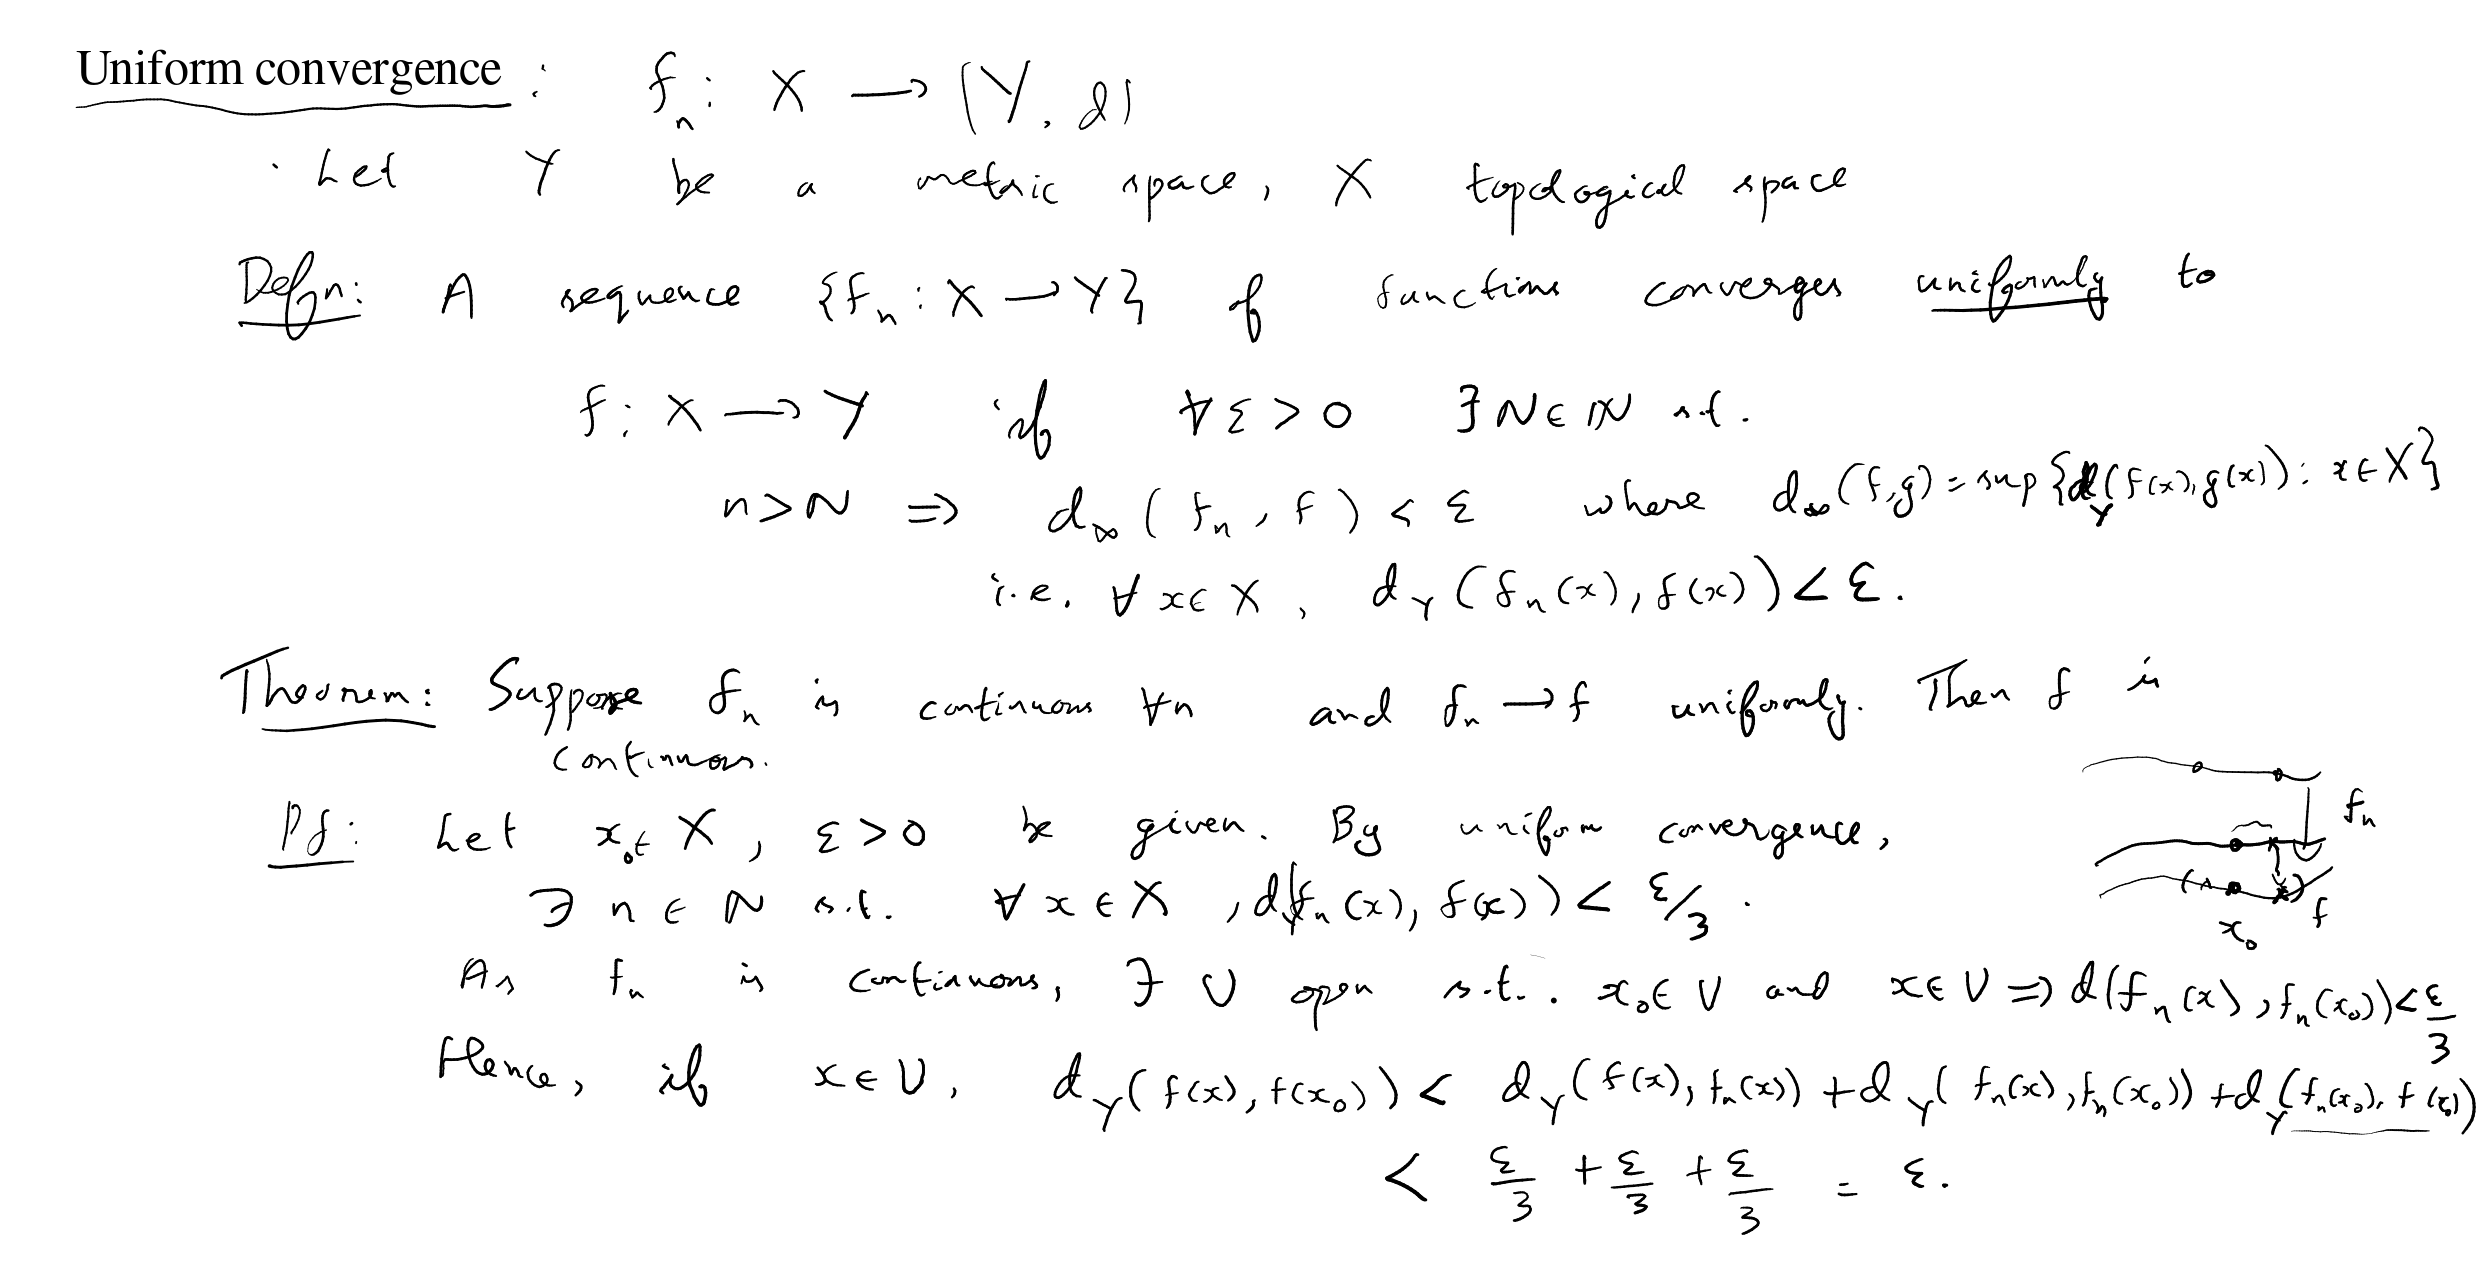 Uniform convergence : fₙ : X → (Y, d)
· Let Y be a metric space, X topological space
Defn: A sequence {fₙ : X → Y} of functions converges uniformly to
f : X → Y if ∀ ε > 0 ∃ N ∈ ℕ s.t.
n > N ⇒ d∞(fₙ, f) < ε where d∞(f,g) = sup{d_Y(f(x), g(x)) : x ∈ X}
i.e. ∀ x ∈ X, d_Y(fₙ(x), f(x)) < ε.
Theorem: Suppose fₙ is continuous ∀n and fₙ → f uniformly. Then f is
continuous.
Pf: Let x₀ ∈ X, ε > 0 be given. By uniform convergence,
fₙ
∃ n ∈ ℕ s.t. ∀ x ∈ X, d_Y(fₙ(x), f(x)) < ε/3.
f
x₀
As fₙ is continuous, ∃ U open s.t. x₀ ∈ U and x ∈ U ⇒ d(fₙ(x), fₙ(x₀)) < ε/3
Hence, if x ∈ U, d_Y(f(x), f(x₀)) < d_Y(f(x), fₙ(x)) + d_Y(fₙ(x), fₙ(x₀)) + d_Y(fₙ(x₀), f(x₀))
< ε/3 + ε/3 + ε/3 = ε.